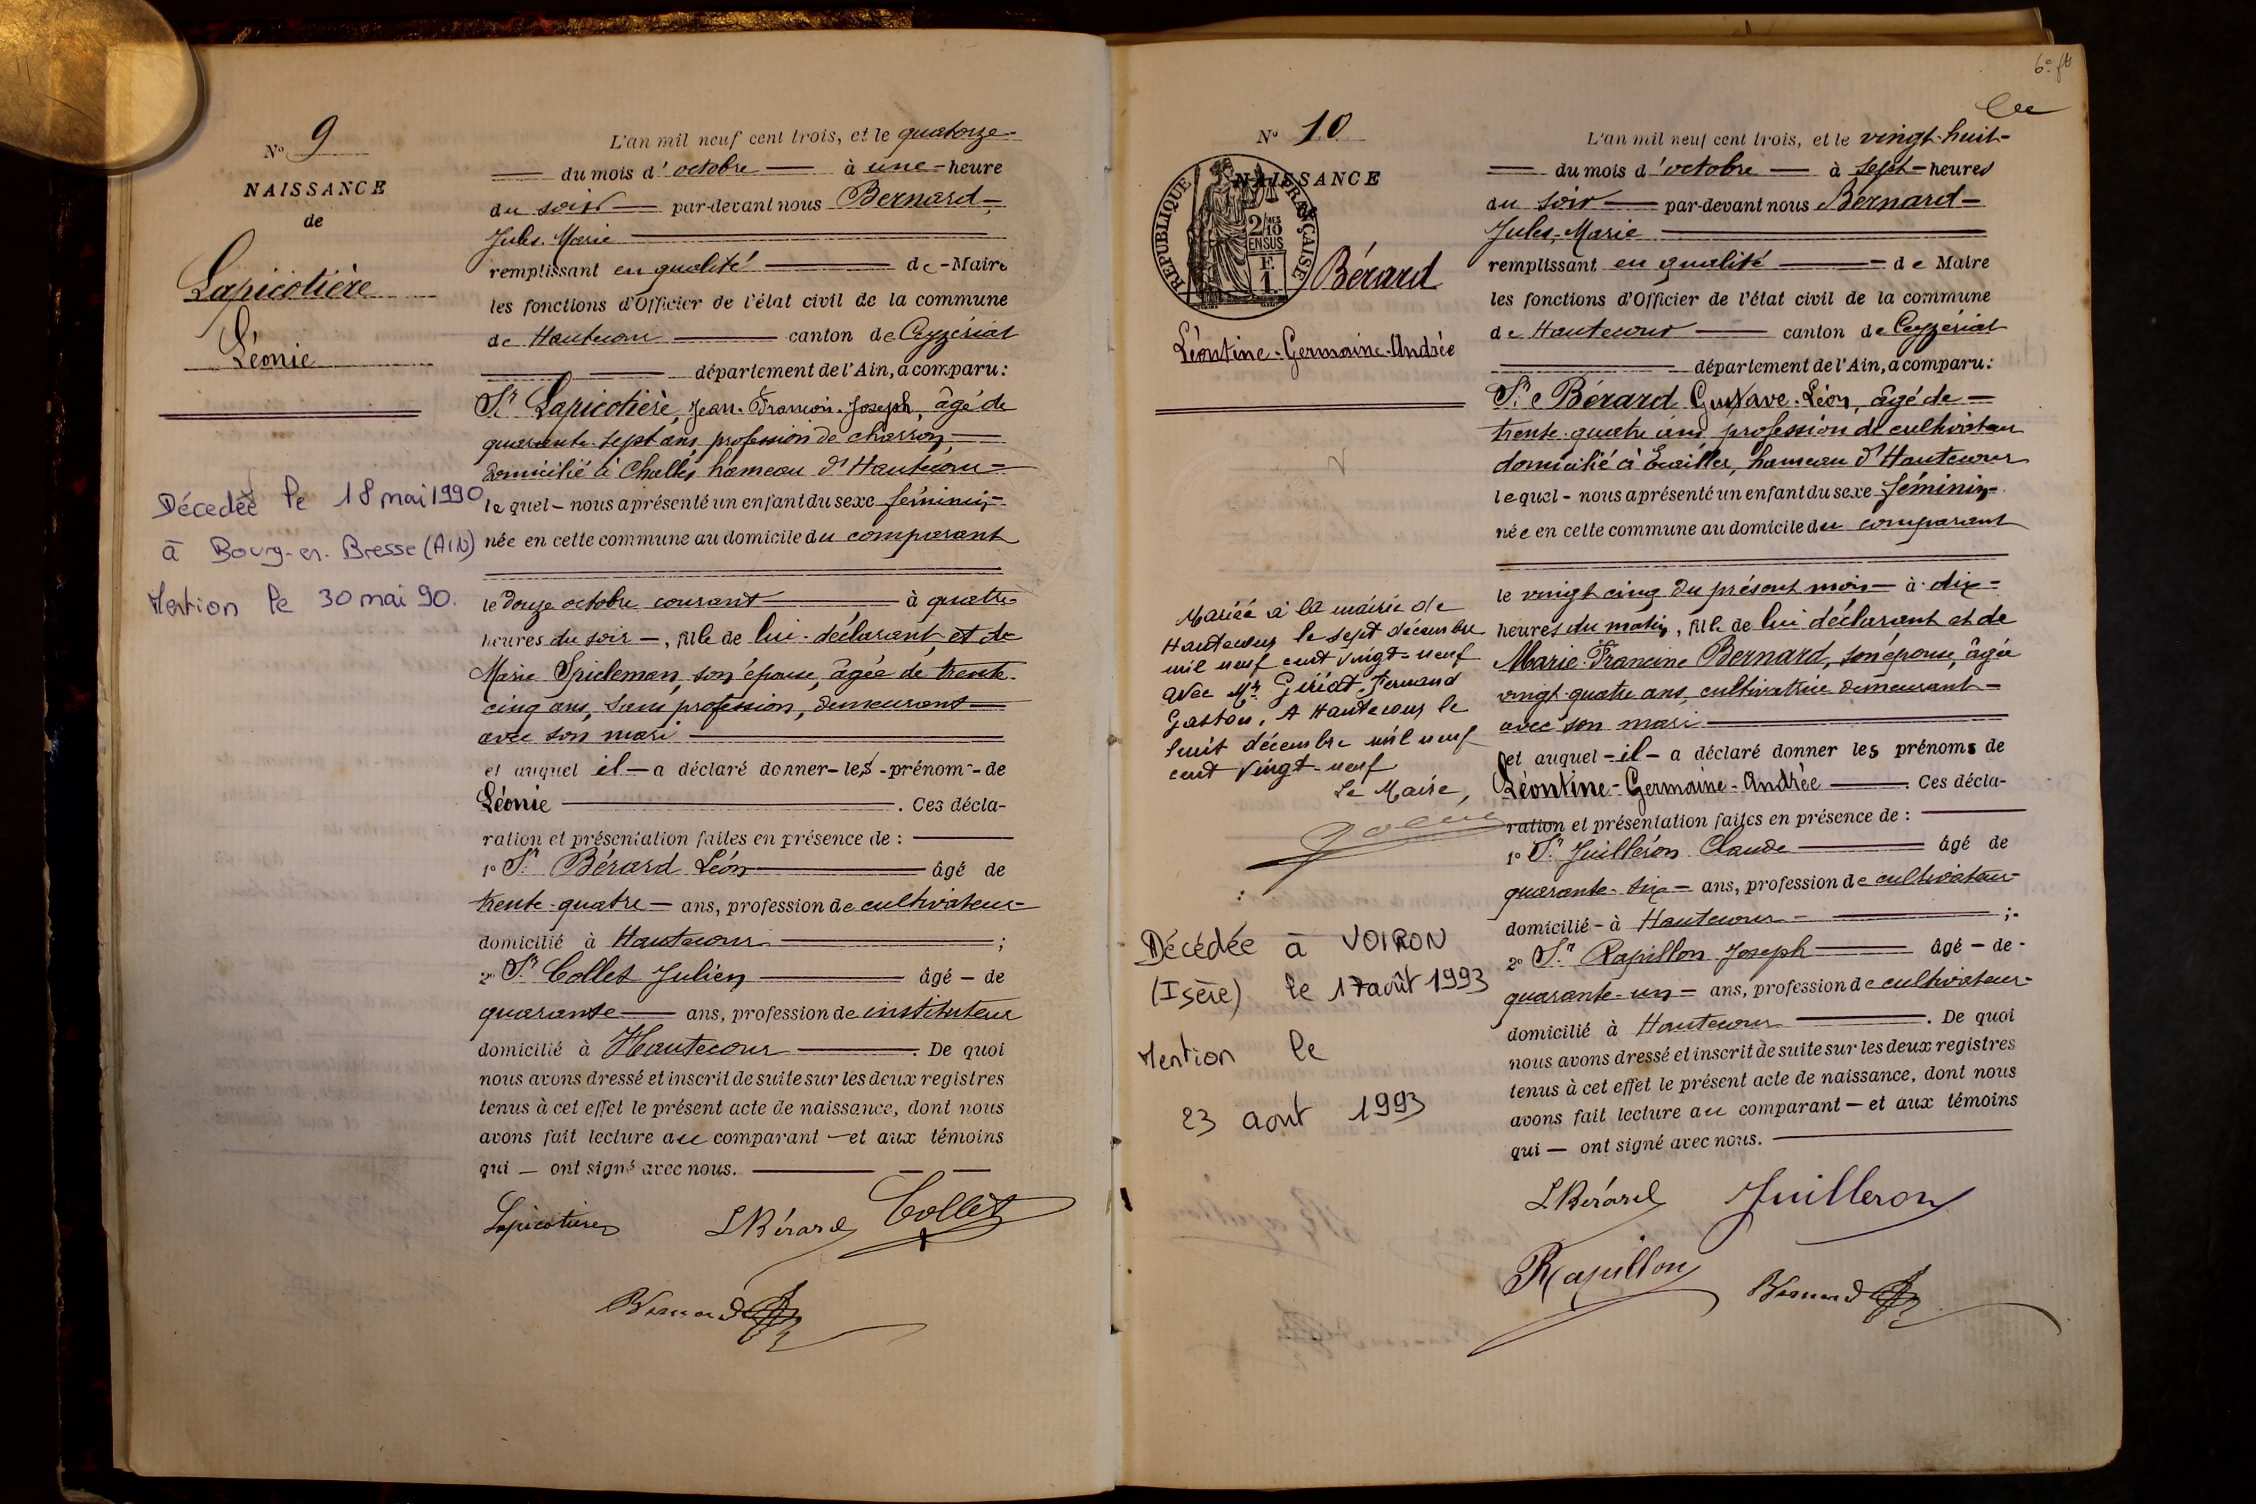 Nº 9
NAISSANCE
de
Lapicotière
Léonie
Décedée le 18 mai 1990
à Bourg-en-Bresse (AIN)
Mention le 30 mai 90.
L'an mil neuf cent trois, et le quatorze
du mois d'octobre à une heure
du soir par-devant nous Bernard
Jules Marie
remplissant en qualité de Maire
les fonctions d'Officier de l'état civil de la commune
de Hautecour canton de Ceyzériat
département de l'Ain, a comparu:
Sr Lapicotière, Jean-François-Joseph, âgé de
quarante-sept ans profession de charron
domicilié à Challes hameau d'Hautecour
lequel nous a présenté un enfant du sexe féminin
née en cette commune au domicile du comparant
le douze octobre courant à quatre
heures du soir, fille de lui déclarant et de
Marie Spieleman, son épouse, âgée de trente-
cinq ans, sans profession, demeurant
avec son mari
et auquel il a déclaré donner les prénoms de
Léonie. Ces décla-
ration et présentation faites en présence de :
1º Sr Bérard Léon âgé de
trente-quatre ans, profession de cultivateur
domicilié à Hautecour ;
2º Sr Collet Julien âgé de
quarante ans, profession de instituteur
domicilié à Hautecour. De quoi
nous avons dressé et inscrit de suite sur les deux registres
tenus à cet effet le présent acte de naissance, dont nous
avons fait lecture au comparant et aux témoins
qui ont signé avec nous.
Lapicotière LBérard Collet
Bernard
6e ft
Nº 10
NAISSANCE
REPUBLIQUE FRANÇAISE
2/10 EN SUS
Bérard
Léontine-Germaine-Andrée
Mariée à la mairie de
Hautecour le sept décembre
mil neuf cent vingt-neuf
avec Mr Gériat Fernand
Gaston. A Hautecour le
huit décembre mil neuf
cent vingt-neuf
Le Maire,
Décédée à VOIRON
(Isère) le 17 août 1993
Mention le
23 aout 1993
L'an mil neuf cent trois, et le vingt-huit
du mois d'octobre à sept heures
du soir par-devant nous Bernard
Jules-Marie
remplissant en qualité de Maire
les fonctions d'Officier de l'état civil de la commune
de Hautecour canton de Ceyzériat
département de l'Ain, a comparu:
Sr Bérard Gustave-Léon, âgé de
trente-quatre ans profession de cultivateur
domicilié à hameau d'Hautecour
lequel nous a présenté un enfant du sexe féminin
née en cette commune au domicile du comparant
le vingt cinq du présent mois à dix
heures du matin, fille de lui déclarant et de
Marie-Francine Bernard, son épouse, âgée
vingt-quatre ans, cultivatrice demeurant
avec son mari
et auquel il a déclaré donner les prénoms de
Léontine-Germaine-Andrée. Ces décla-
ration et présentation faites en présence de :
1º Sr Juilleron Claude âgé de
quarante-six ans, profession de cultivateur
domicilié à Hautecour ;
2º Sr Rapillon Joseph âgé de
quarante-un ans, profession de cultivateur
domicilié à Hautecour. De quoi
nous avons dressé et inscrit de suite sur les deux registres
tenus à cet effet le présent acte de naissance, dont nous
avons fait lecture au comparant et aux témoins
qui ont signé avec nous.
LBérard Juilleron
Rapillon Bernard